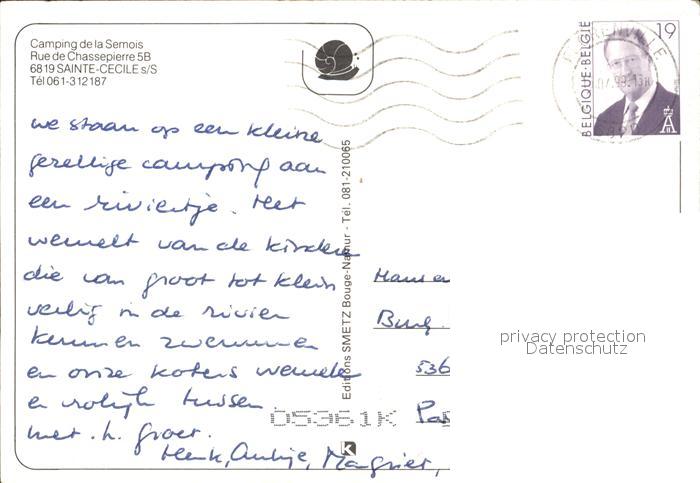 Camping de la Semois
Rue de Chassepierre 5B
6819 SAINTE-CECILE s/S
Tél 061-312187
BELGIQUE-BELGIE
19
we staan op een kleine
gezellige camping aan
een riviertje. Het
wemelt van de kinderen
die van groot tot klein
veilig in de rivier
kunnen zwemmen
en onze koters wemelen
er vrolijk tussen
met . h. groet.
Henk, Margriet,
Editions SMETZ Bouge-Namur - Tél. 081-210065
Hans en
Burg.
536
privacy protection
Datenschutz
05361K
K